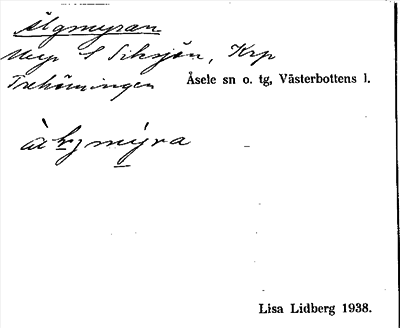 Älgmyran
Myr S Siksjön, Krp
Trehörningen Åsele sn o. tg, Västerbottens l.
Lisa Lidberg 1938.